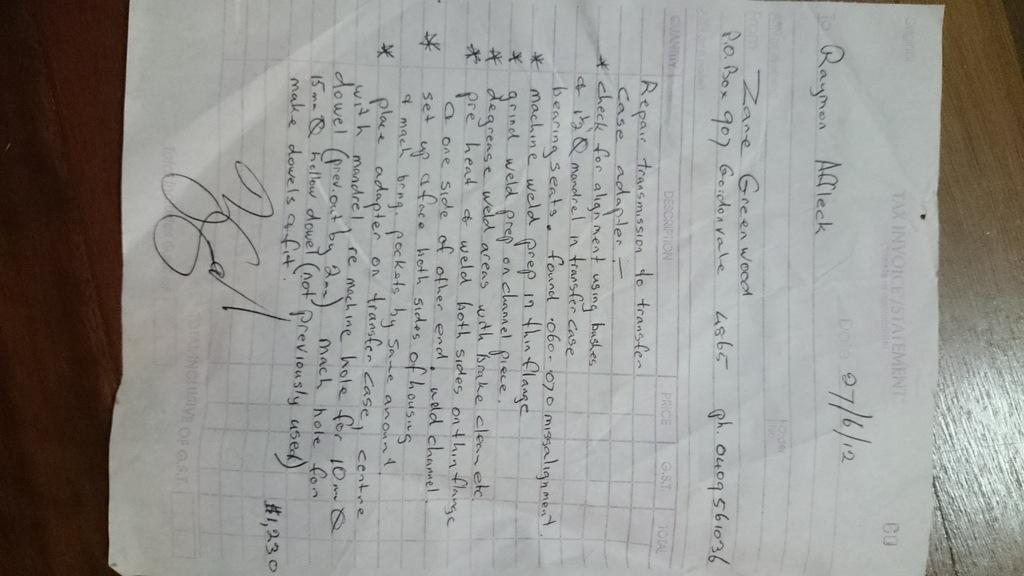 Original
TAX INVOICE/STATEMENT
60
To Raymon Affleck
Date 27/6/12
From Zane Greenwood
P.O. Box 907 Gordonvale 4865 ph 0409561036
QUANTITY DESCRIPTION PRICE G.S.T. TOTAL
Repair transmission to transfer
case adapter :-
* check for alignment using bushes
& 1½"Ø mandrel in transfer case
bearing seats. found .060-.070 missalignment.
* machine weld prep in thin flange
* grind weld prep on channel piece.
* degrease weld areas with brake clean etc
* pre heat & weld both sides on thin flange
& one side of other end. weld channel.
* set up & face both sides of housing
& mach bring pockets by same amount
* place adapter on transfer case, centre
with mandrel, re machine hole for 10mmØ
dowel (prev out by 2mm) mach hole for
15mmØ hollow dowel (not previously used)
make dowels & fit.
$1,230
TOTAL INCLUSIVE OF G.S.T.